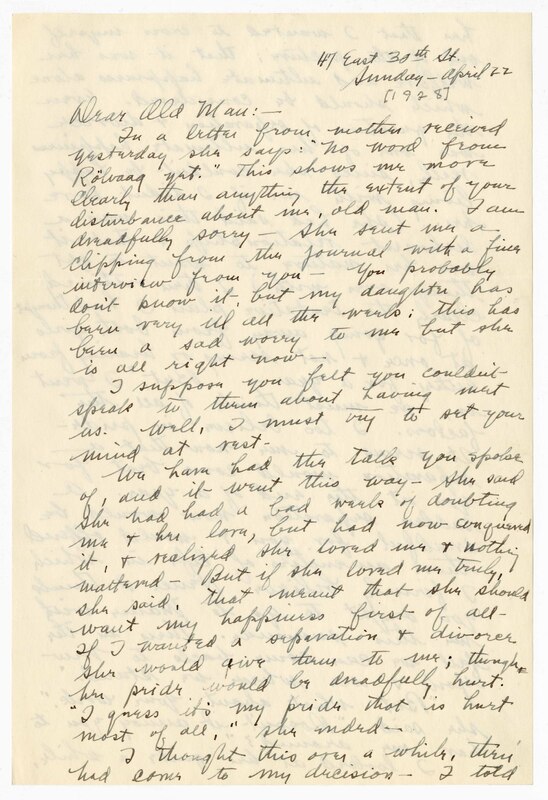 47 East 30th St.
Sunday - April 22
[1928]
Dear Old Man:-
In a letter from mother received
yesterday she says: "No word from
Rölvaag yet." This shows me more
clearly than anything the extent of your
disturbance about me, old man. I am
dreadfully sorry - She sent me a
clipping from the Journal with a fine
interview from you - You probably
don't know it, but my daughter has
been very ill all the week; this has
been a sad worry to me but she
is all right now -
I suppose you felt you couldn't
speak to them about having met
us. Well, I must try to set your
mind at rest -
We have had the talk you spoke
of, and it went this way - She said
she had had a bad week of doubting
me & her love, but had now conquered
it, & realized she loved me & nothing
mattered - But if she loved me truly,
she said, that meant that she should
want my happiness first of all -
If I wanted a separation & divorce
she would give them to me; though
her pride would be dreadfully hurt.
"I guess it's my pride that is hurt
most of all," she ended -
I thought this over a while, then
had come to my decision - I told